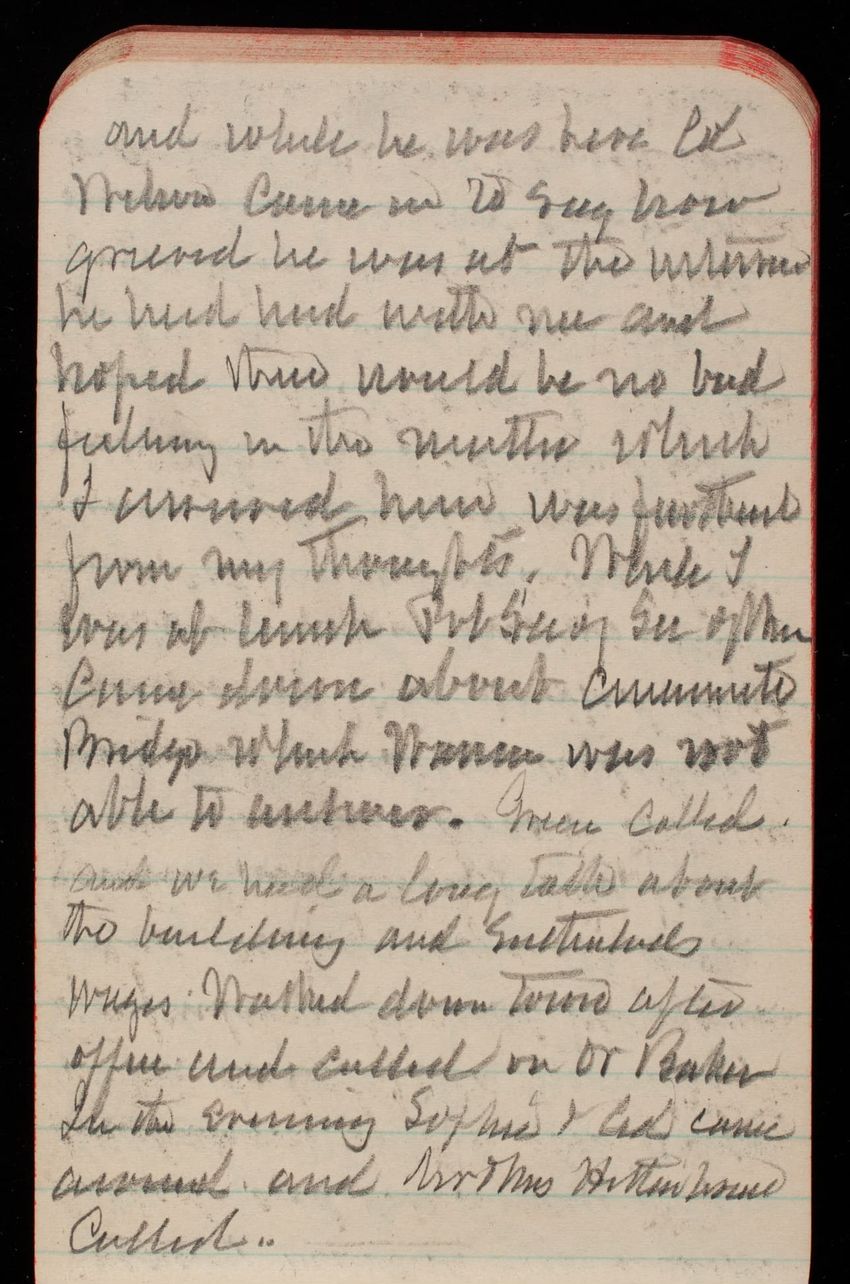 and while he was here Col
Wilson Came in to say how
grieved he was at the interview
he had had with me and
hoped there would be no bad
feeling in the matter which
I assured him was furthest
from my thoughts. While I
was at lunch Pvt Secy Sec of War
Came down about
Bridge which Warren was not
able to answer. Green Called
and we had a long talk about
the building and
wages Walked down town after
office and called on Dr Baker
In the evening Sophie & Ed came
around and Mr & Mrs Hittenhouse
Called..